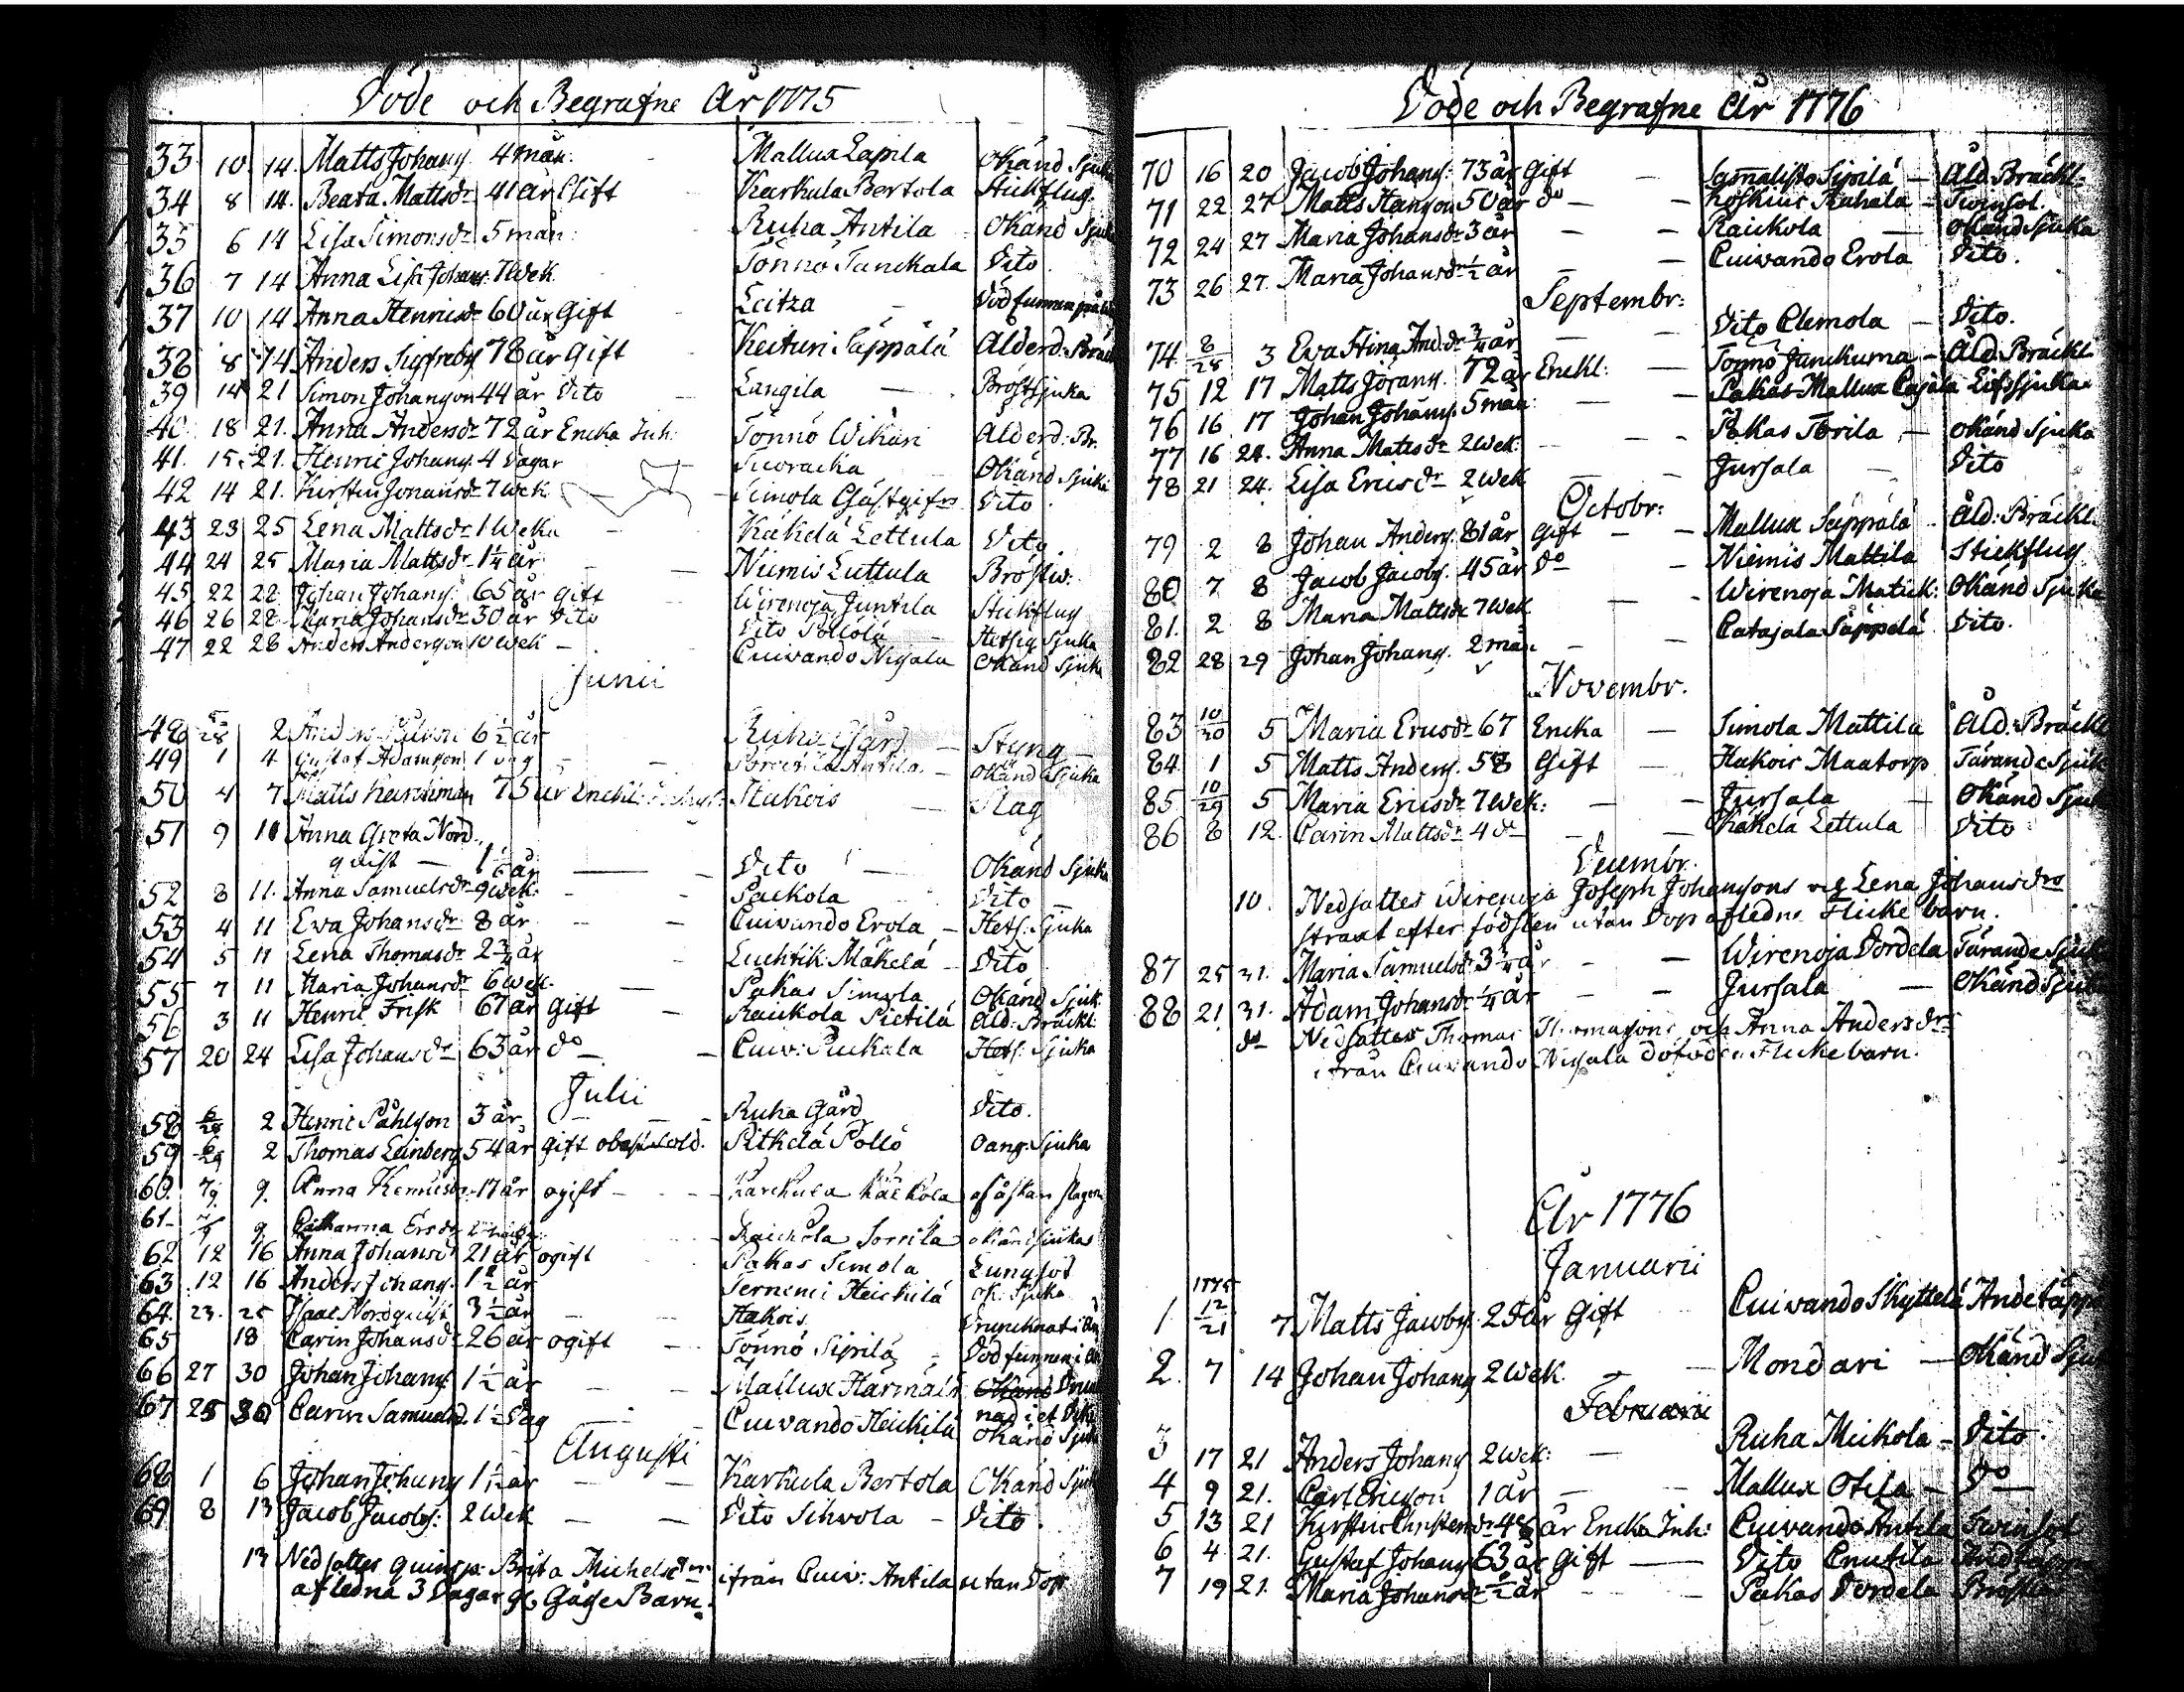 Döde och Begrafne År 1775
33 10 14. Matts Johans. 4 mån: Mallux Lapila Okänd Sjuka
34 8 14. Beata Mattsdr 41 år Gift Karkula Bertola Stickflug.
35 6 14 Lisa Simonsdr 5 mån: Ruha Antila Okänd Sjuka
36 7 14 Anna Lisa Johans. 7 Wek Tönnö Tanckala Dito.
37 10 14 Anna Henricsdr 60 år Gift Leitza Död funnen på
38 8 14 Anders Sigfreds. 78 år Gift Keituri Säppälä Ålderd: Bräck
39 14 21 Simon Johansson 44 år Dito Langila Bröstsjuka
40 18 21. Anna Andersdr 72 år Encka Inh: Tönnö Wikari Ålderd: Br.
41. 15. 21. Henric Johans. 4 Dagar Suoracka Okänd Sjuka
42 14 21. Kirstin Johansdr 7 Wek Simola Gästgifvs Dito
43 23 25 Lena Mattsdr 1 Weka Käkelä Lettula Dito
44 24 25 Maria Mattsdr 1 1/4 år Niemis Luttula Bröstw:
45 22 28 Johan Johans. 65 år Gift Wirenoja Juntila Stickflug
46 26 28 Maria Johansdr 30 år Dito Dito Pollola Hetsig Sjuka
47 22 28 Anders Andersson 10 Wek Cuivando Nygala Okänd Sjuka
Junii
48 5/28 2 Anders Pålson 6 1/2 år Ruha Gård Styng
49 1 4 Gustaf Adamson 1 Dag Antila Okänd Sjuka
50 4 7 Matts 75 år Enckl: Hakois Slag
51 9 11 Anna Greta Nord-
quist 1 1/6 år Dito Okänd Sjuka
52 8 11. Anna Samuelsdr 9 Wek: Paickola Dito
53 4 11 Ewa Johansdr 8 år Cuivando Erola Hets: Sjuka
54 5 11 Lena Thomasdr 2 3/4 år Luchtik: Mäkelä Dito
55 7 11 Maria Johansdr 6 Wek. Pakas Simola Okänd Sjuk:
56 3 11 Henric Frisk 67 år Gift Raickola Pietilä Åld: Bräckl:
57 20 24 Lisa Johansdr 63 år do Cuiv: Puckala Hets: Sjuka
Julii
58 6/28 2 Henric Påhlson 3 år Ruha Gård Dito.
59 6/29 2 Thomas Leinberg 54 år gift Pitkelä Pollo Oang. Sjuka
60. 7/9. 9. Anna Henricsdr 17 år ogift Karckula Käckölä af åskan slagen
61. 9 Catharina Ersdr Raickola Sorrila okänd sjuka
62 12 16 Anna Johansdr 21 år ogift Pakas Simola Lungsot
63 12 16 Anders Johans. 1 1/2 år Ternemi Heickilä Ok: Sjuka
64. 23. 25 Isaac Nordquist 3 1/2 år Hakois Druncknat i
65 18 Carin Johansdr 26 år ogift Tönnö Sipilä Död funnen i
66 27 30 Johan Johans. 1 1/2 år Mallux Härmälä Okänd
67 25 30 Carin Samuelsd. 1 1/2 Dag Cuivando Heickilä nad i et Dike Okänd Sjuka
Augusti
68 1 6 Johan Johans 1 1/2 år Karkula Bertola Okänd Sjuk
69 8 13 Jacob Jacobs: 2 Wek Dito Schvola Dito.
13 Nedsattes Brita Michelsdrs ifrån Cuiv: Antila utan Dop
afledna 3 Dagar gl. Gåsse Barn.
Döde och Begrafne År 1776
70 16 20 Jacob Johans: 73 år Gift Sipilä Åld. Bräckl.
71 22 27 Matts Hansson 50 år do Koskius Rahala Twinsot.
72 24 27 Maria Johansdr 3 år Raickola Okänd Sjuka
73 26 27. Maria Johansdr 1/2 år Cuivando Erola Dito.
Septembr:
74 8/28 3 Eva Stina And:dr 3/4 år Dito Clemola Dito.
75 12 17 Matts Jörans. 72 år Enckl: Tönnö Junckuma Åld: Bräckl
76 16 17 Johan Johans. 5 mån: Pakas Mallux Cajala Lifssjuka
77 16 24. Anna Mattsdr 2 Wek: Pokas Torila Okänd Sjuka
78 21 24. Lisa Ericsdr 2 Wek Jursala Dito
Octobr:
79 2 8 Johan Anders. 81 år Gift Mallux Säppälä Åld: Bräckl.
80 7 8 Jacob Jacobs. 45 år do Niemis Mattila Stickflug
81. 2 8 Maria Mattsdr 7 Wek Wirenoja Matick: Okänd Sjuka
82 28 29 Johan Johans. 2 mån. Catajala Säppelä Dito.
Novembr.
83 10/30 5 Maria Ericsdr 67 Encka Simola Mattila Åld: Bräckl
84 1 5 Matts Anders. 58 Gift Hakois Maatorp Tärande Sjuk
85 10/29 5 Maria Ericsdr 7 Wek: Jursala Okänd Sjuk
86 8 12. Carin Mattsdr 4 do Käkelä Lettula Dito
Decembr.
10. Nedsattes Wirenoja Joseph Johanssons och Lena Johansdrs
straxt efter födslen utan Dop afledne Flicke barn.
87 25 31. Maria Samuelsdr 3 3/4 år Wirenoja Dordela Tärande Sjuk
88 21 31. Adam Johansdr 1/4 år Jursala Okänd Sjuka
do Nedsattes Thomas Thomassons och Anna Andersdrs
ifrån Cuivando Nygala dödfödda Flickebarn.
År 1776
Januarii
1775
1 12/21 7 Matts Jacobs. 25 år Gift Cuivando Skyttelä Andetäppa
2. 7 14 Johan Johans 2 Wek. Mondari Okänd Sjuk
Februarii
3 17 21 Anders Johans 2 Wek: Ruha Mickola Dito.
4 9 21. Carl Ericson 1 år Mallux Otila Do
5 13 21 Kirstin Christersdr 48 år Encka Inh: Cuivando Antila Twinsot
6 4 21. Gustaf Johans 63 år Gift Dito Cnutila Andtäppa
7 19 21. Maria Johansdr 1/2 år Pakas Dordela